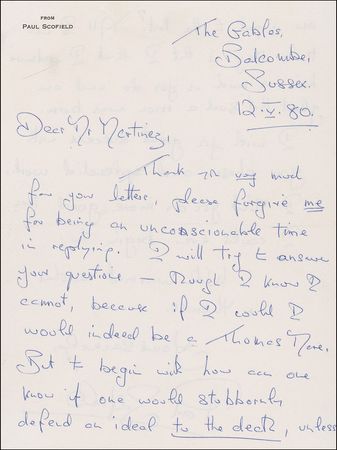 FROM
PAUL SCOFIELD
The Gables,
Balcombe,
Sussex.
12.V.80.
Dear Mr Martinez,
Thank you very much
for your letters, please forgive me
for being an unconscionable time
in replying. I will try to answer
your questions — though I know I
cannot, because if I could I
would indeed be a Thomas More.
But to begin with how can one
know if one would stubbornly
defend an ideal to the death, unless